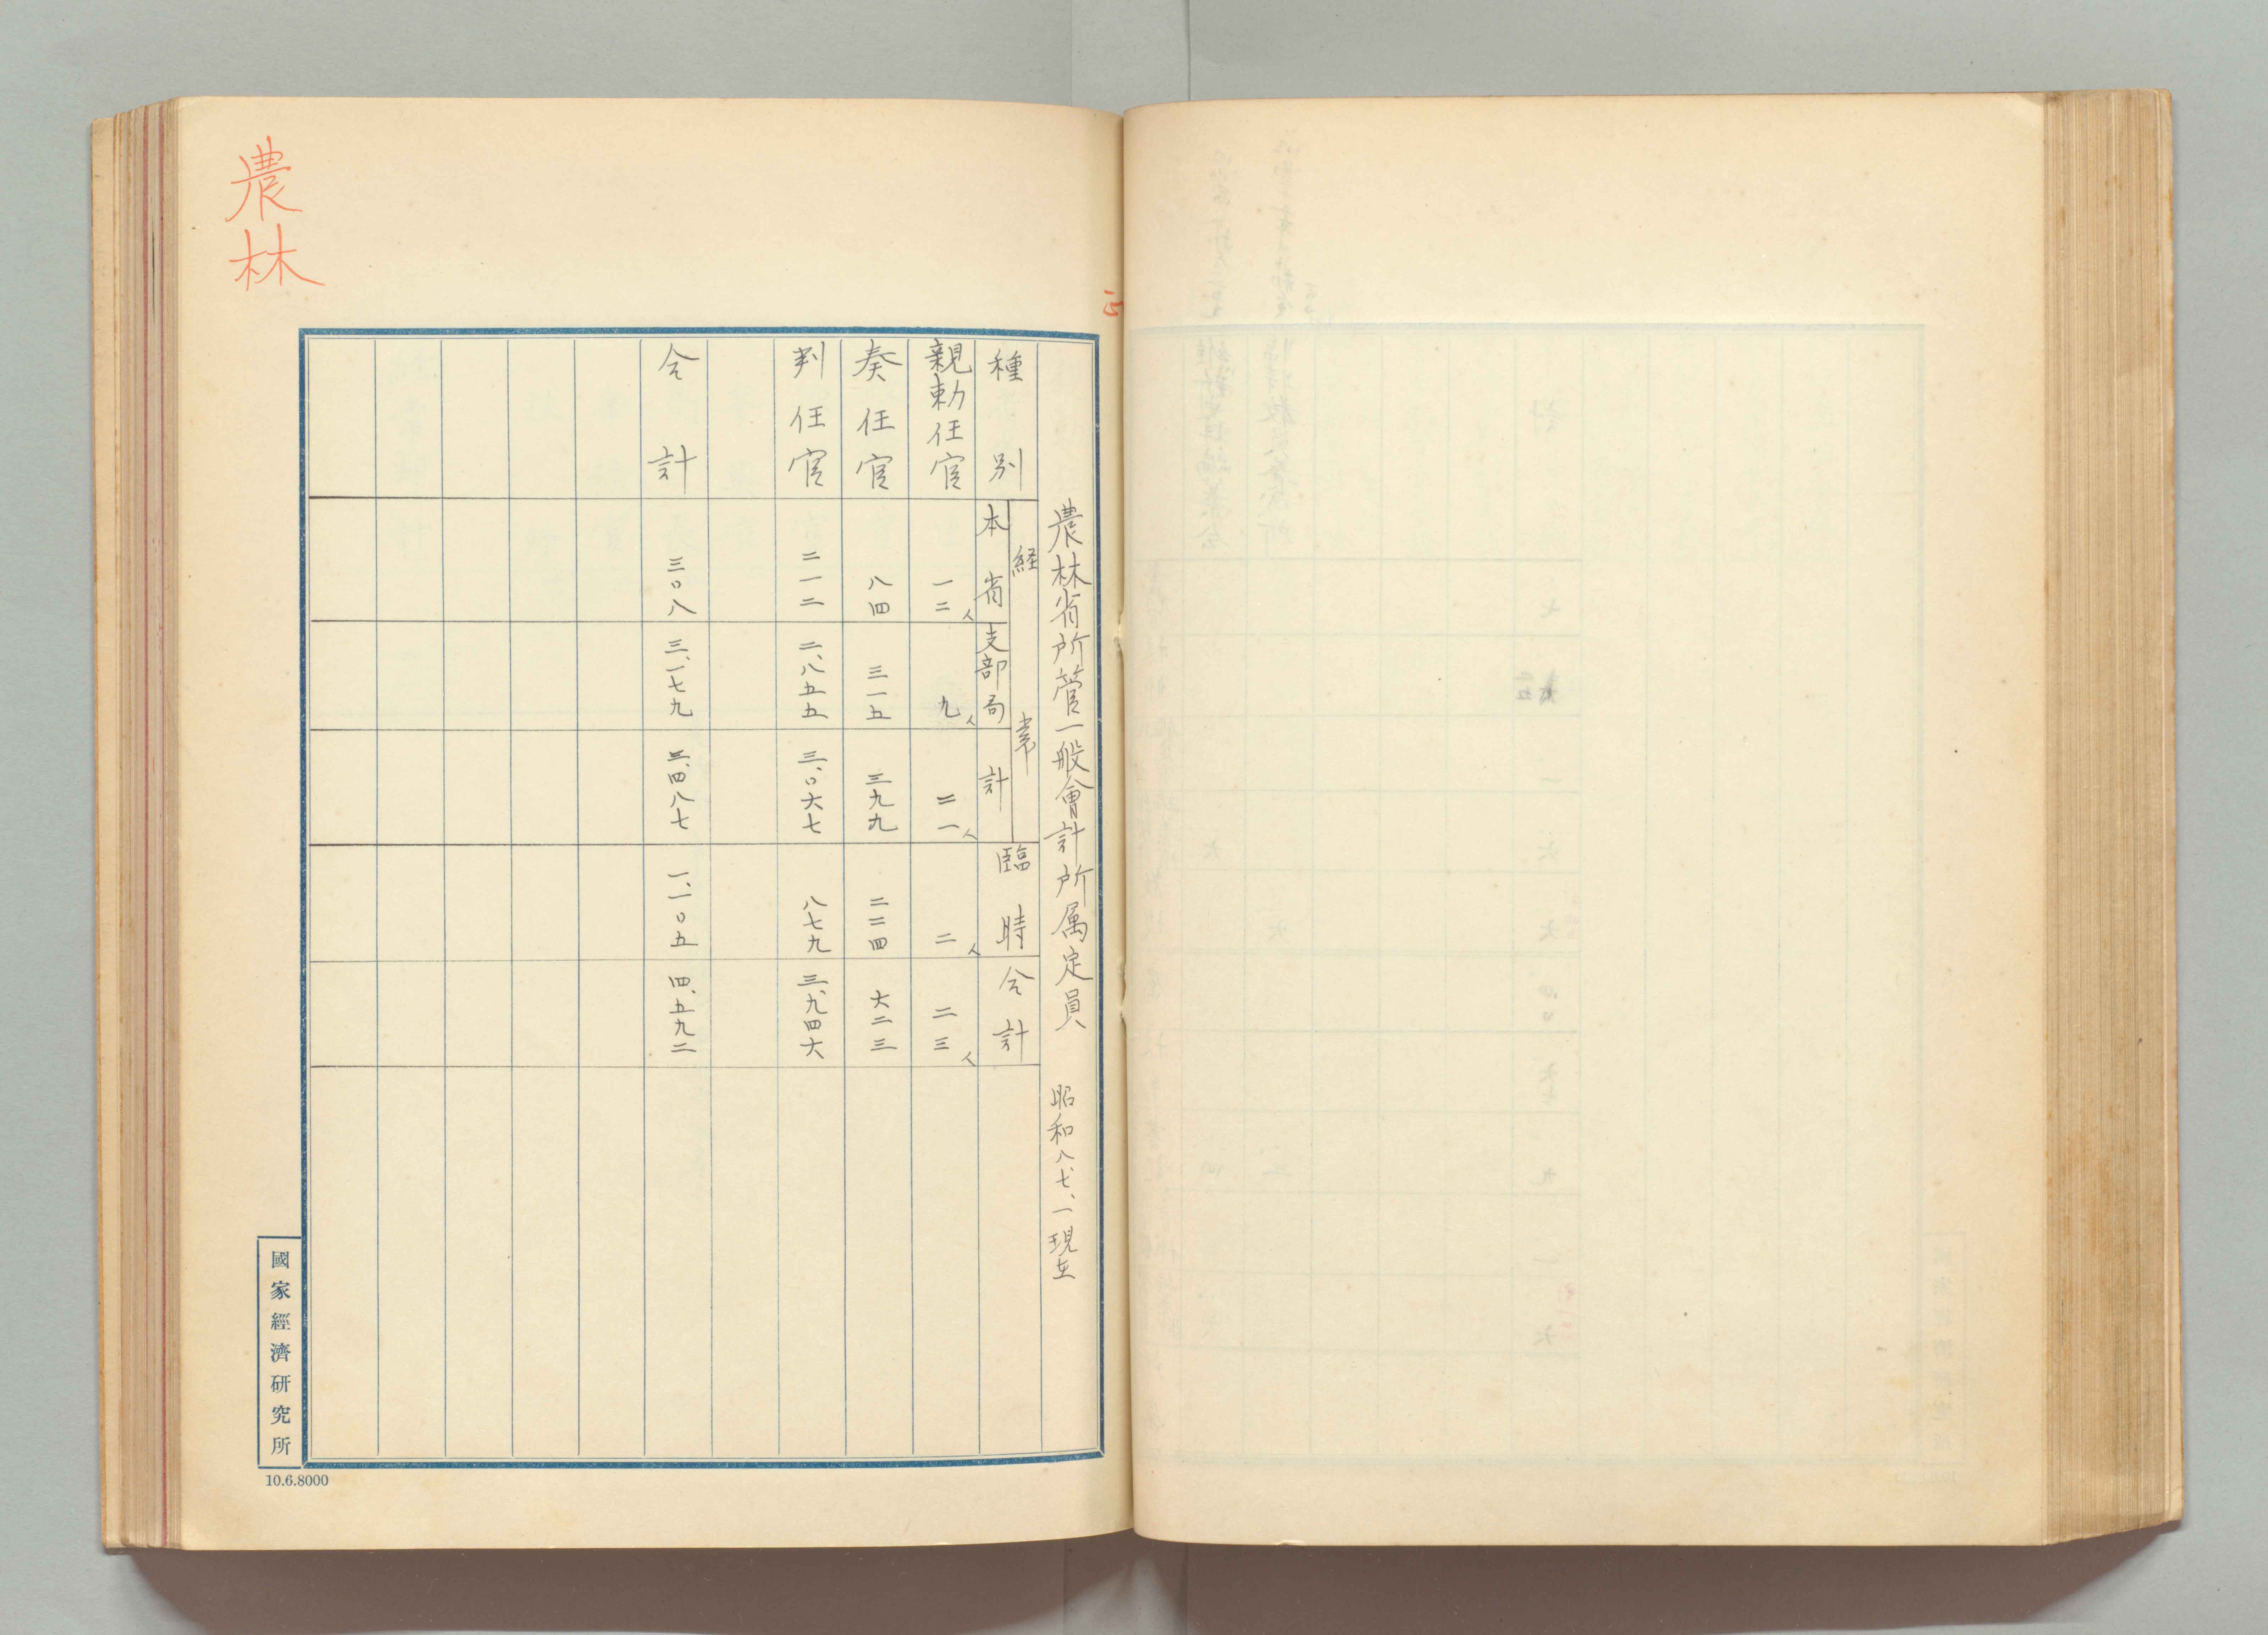 農林
農林省所管一般會計所属定員　昭和八、七、一現在
種別
経常
本省
支部局
計
臨時
合計
親勅任官　一二人　九人　二一人　二人　二三人
奏任官　八四　三一五　三九九　二二四　六二三
判任官　二一二　二、八五五　三、〇六七　八七九　三、九四六
合計　三〇八　三、一七九　三、四八七　一、一〇五　四、五九二
國家經濟研究所
10.6.8000